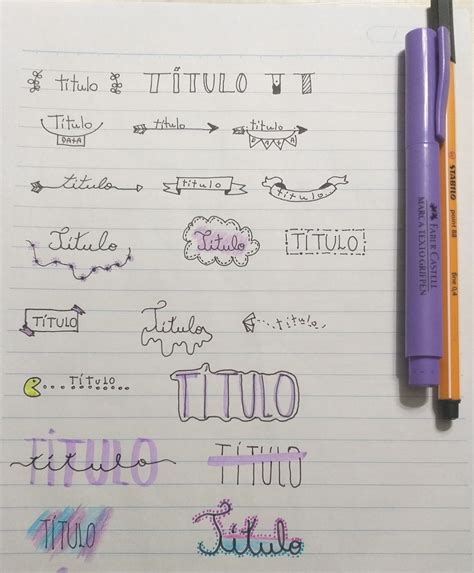 título TÍTULO
Título título título
DATA DATA
título título título
Título Título TÍTULO
TÍTULO Título título
TÍTULO TÍTULO
TÍTULO TÍTULO
título
TÍTULO Título
FABER-CASTELL
MARCA TEXTO GRIFPEN
STABILO
point 88
fine 0,4